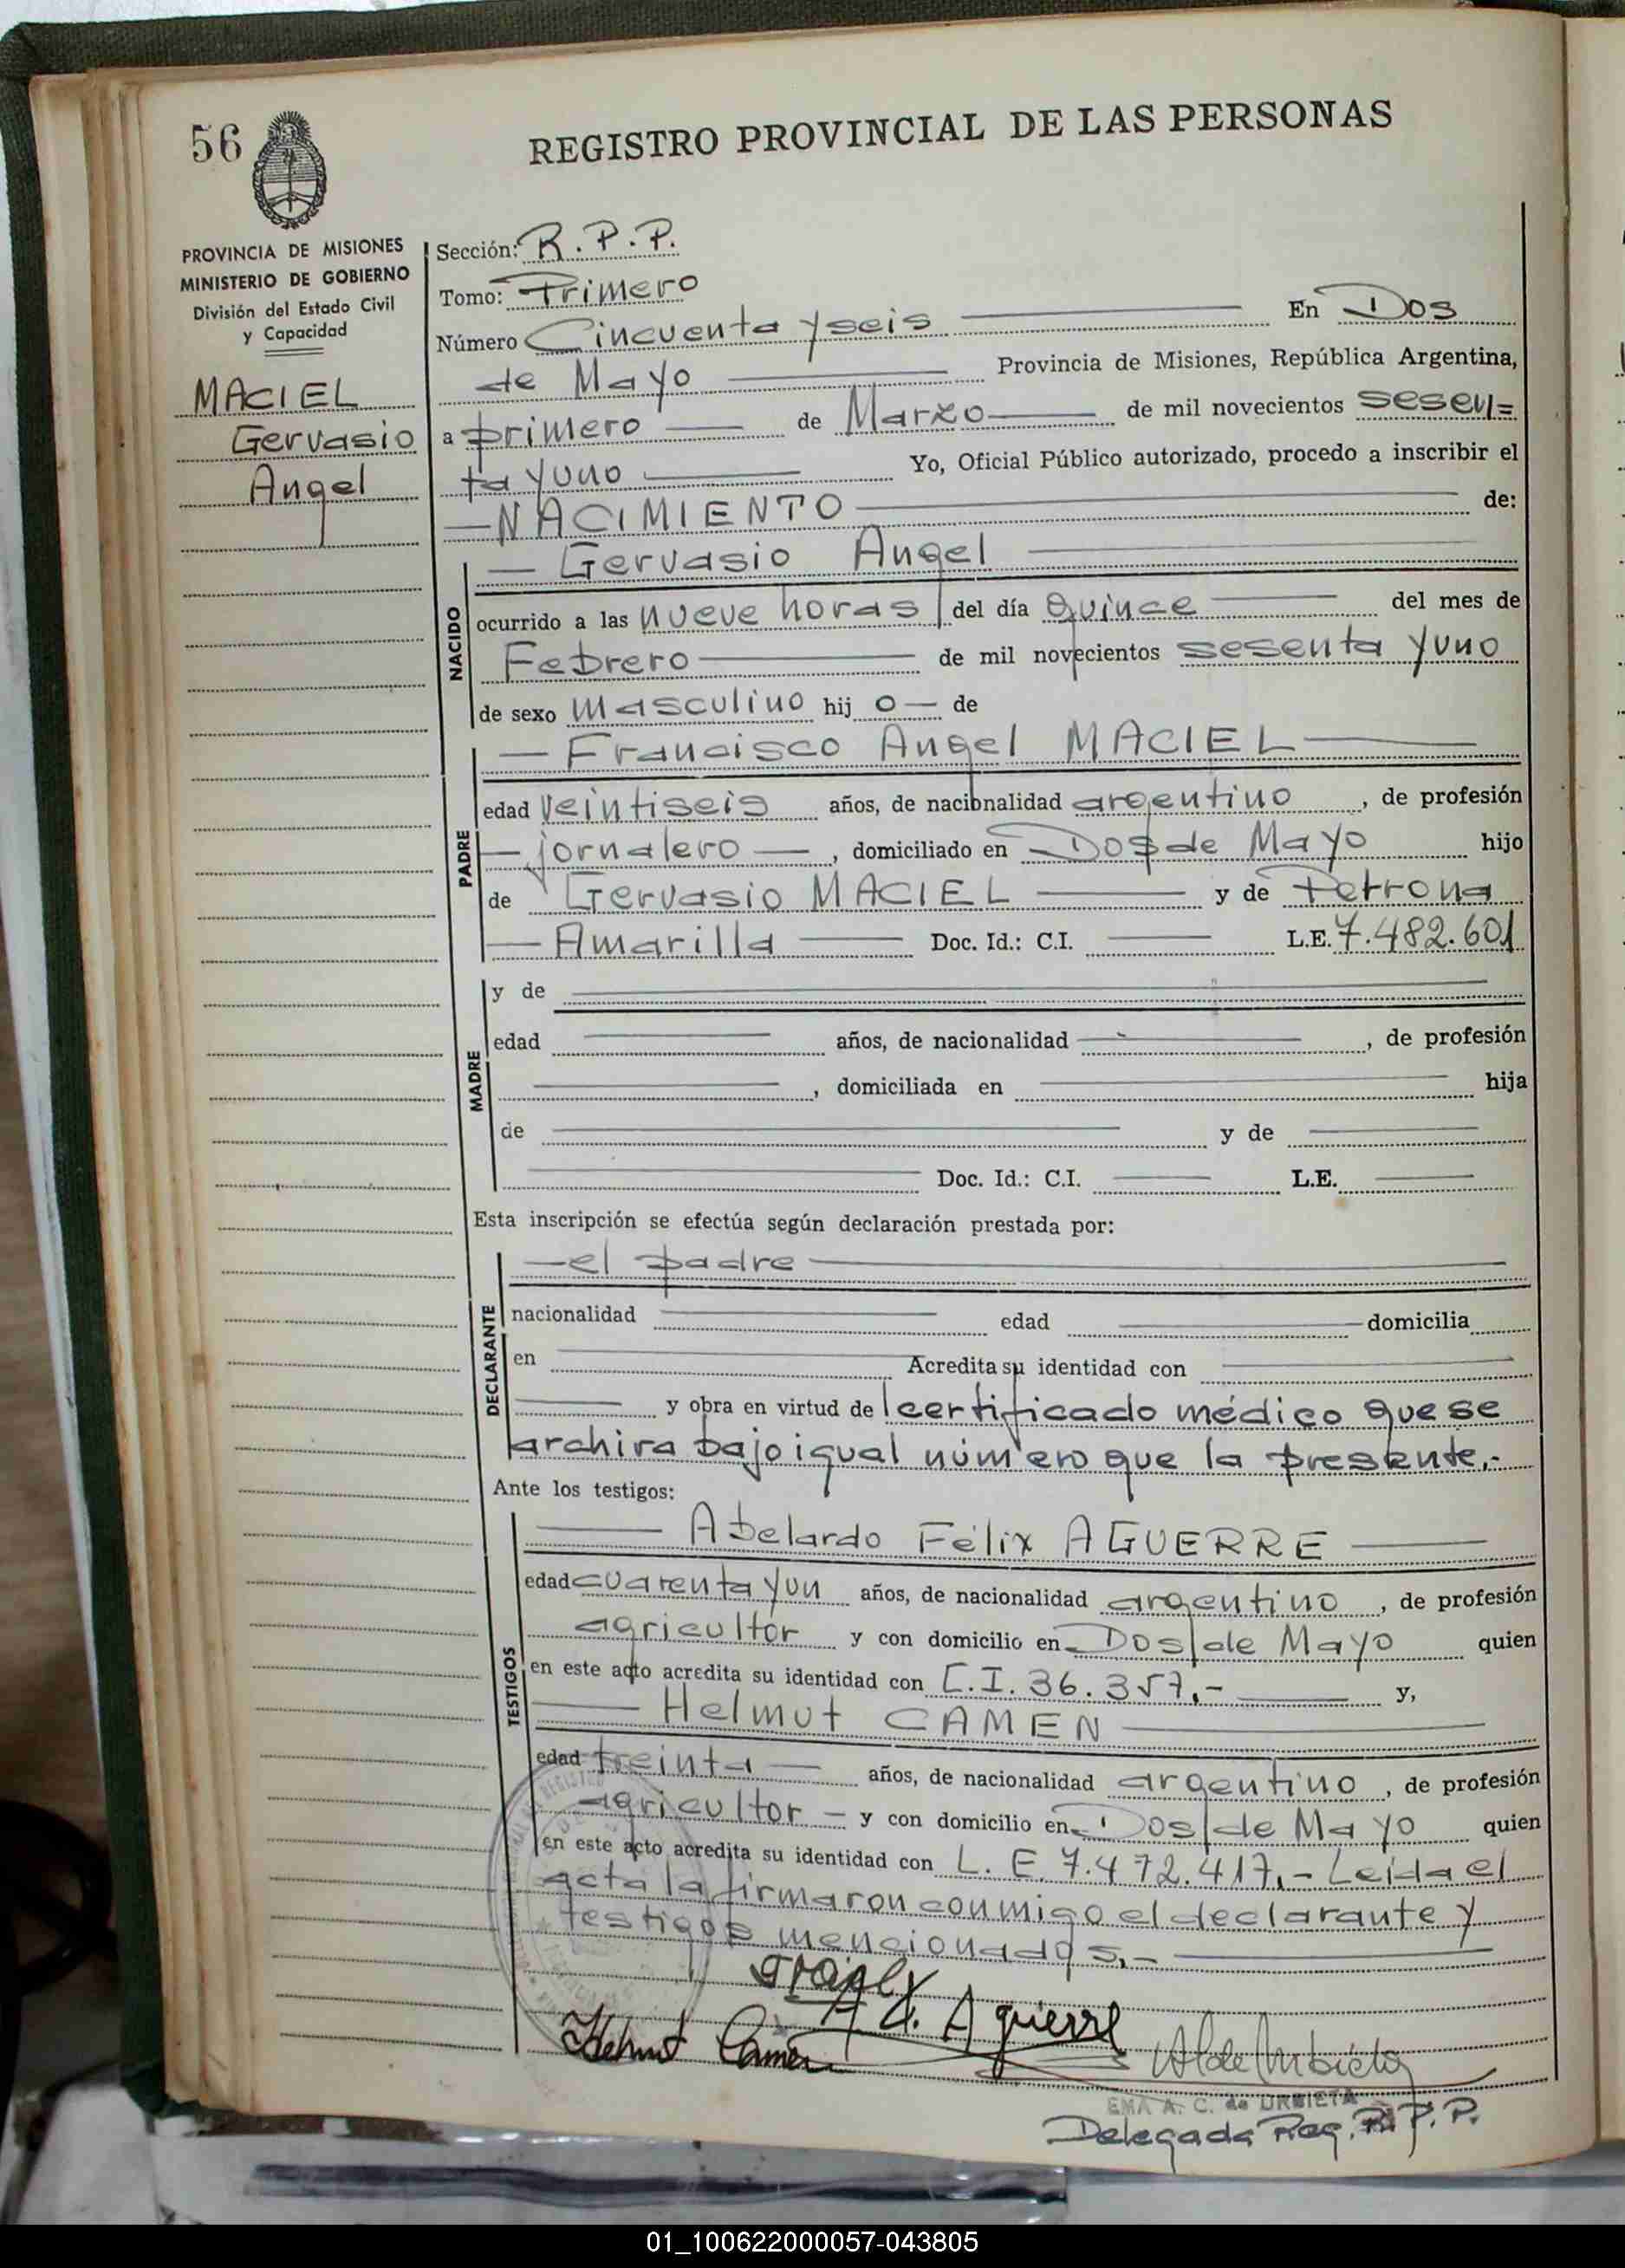 56
REGISTRO PROVINCIAL DE LAS PERSONAS
PROVINCIA DE MISIONES
MINISTERIO DE GOBIERNO
División del Estado Civil
y Capacidad
MACIEL
Gervasio
Angel
Sección: R.P.P.
Tomo: Primero
Número Cincuenta y seis En Dos
de Mayo Provincia de Misiones, República Argentina,
a primero de Marzo de mil novecientos sesen=
ta y uno Yo, Oficial Público autorizado, procedo a inscribir el
NACIMIENTO de:
Gervasio Angel
NACIDO
ocurrido a las nueve horas del día quince del mes de
Febrero de mil novecientos sesenta y uno
de sexo masculino hij o de
Francisco Angel MACIEL
PADRE
edad veintiseis años, de nacionalidad argentino, de profesión
jornalero, domiciliado en Dos de Mayo hijo
de Gervasio MACIEL y de Petrona
Amarilla Doc. Id.: C.I. L.E. 7.482.601
MADRE
y de
edad años, de nacionalidad , de profesión
, domiciliada en hija
de y de
Doc. Id.: C.I. L.E.
Esta inscripción se efectúa según declaración prestada por:
el padre
DECLARANTE
nacionalidad edad domicilia
en Acredita su identidad con
y obra en virtud de certificado médico que se
archiva bajo igual número que la presente.-
Ante los testigos:
Abelardo Félix AGUERRE
TESTIGOS
edad cuarenta y un años, de nacionalidad argentino, de profesión
agricultor y con domicilio en Dos de Mayo quien
en este acto acredita su identidad con C.I. 36.357.- y,
Helmut CAMEN
edad treinta años, de nacionalidad argentino, de profesión
agricultor - y con domicilio en Dos de Mayo quien
en este acto acredita su identidad con L.E. 7.472.417.- Leída el
acta la firmaron conmigo el declarante y
testigos mencionados.-
A. F. Aguerre
Helmut Camen
EMA A. C. de URBIETA
Delegada Reg. R.P.P.
01_100622000057-043805